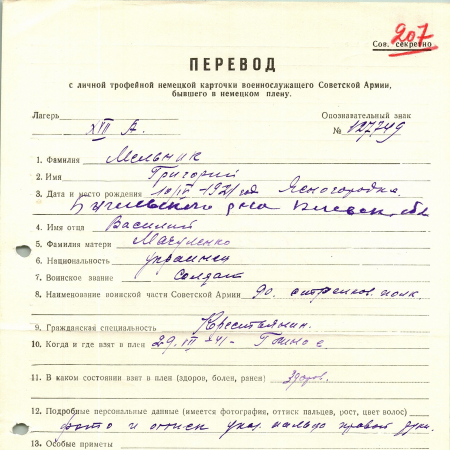 207
Сов. секретно
ПЕРЕВОД
с личной трофейной немецкой карточки военнослужащего Советской Армии,
бывшего в немецком плену.
Лагерь XVII А. Опознавательный знак
№ 127749
1. Фамилия Мельник
2. Имя Григорий
3. Дата и место рождения 10/IV-1921 год Ясногородка
Киевск. обл
4. Имя отца Василий
5. Фамилия матери
6. Национальность украинец
7. Воинское звание Солдат
8. Наименование воинской части Советской Армии 90. стрелков. полк.
9. Гражданская специальность Крестьянин.
10. Когда и где взят в плен
11. В каком состоянии взят в плен (здоров, болен, ранен) Здоров.
12. Подробные персональные данные (имеется фотография, оттиск пальцев, рост, цвет волос)
фото и оттиск указ. пальца правой руки.
13. Особые приметы